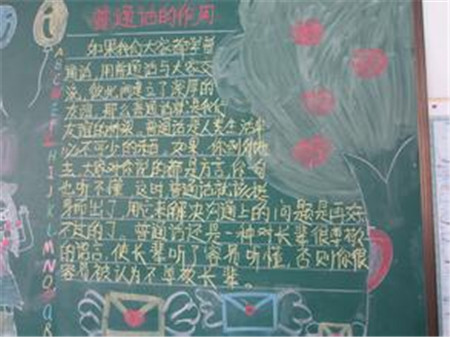 普通话的作用
如果我们大家都学普
通话,用普通话与大家交
流,彼此间建立了深厚的
友谊,那么普通话就是我们
友谊的桥梁。普通话是人类生活中
必不可少的东西。如果,你到外地
去,大家对你说的都是方言,你一句
也听不懂,这时,普通话就应该挺
身而出了,用它来解决沟通上的问题是再好
不过的了。普通话还是一种对长辈很尊敬
的语言,使长辈听了容易听懂,否则你很
容易被认为不尊敬长辈。
A
B
C
D
E
H
I
J
K
L
M
N
O